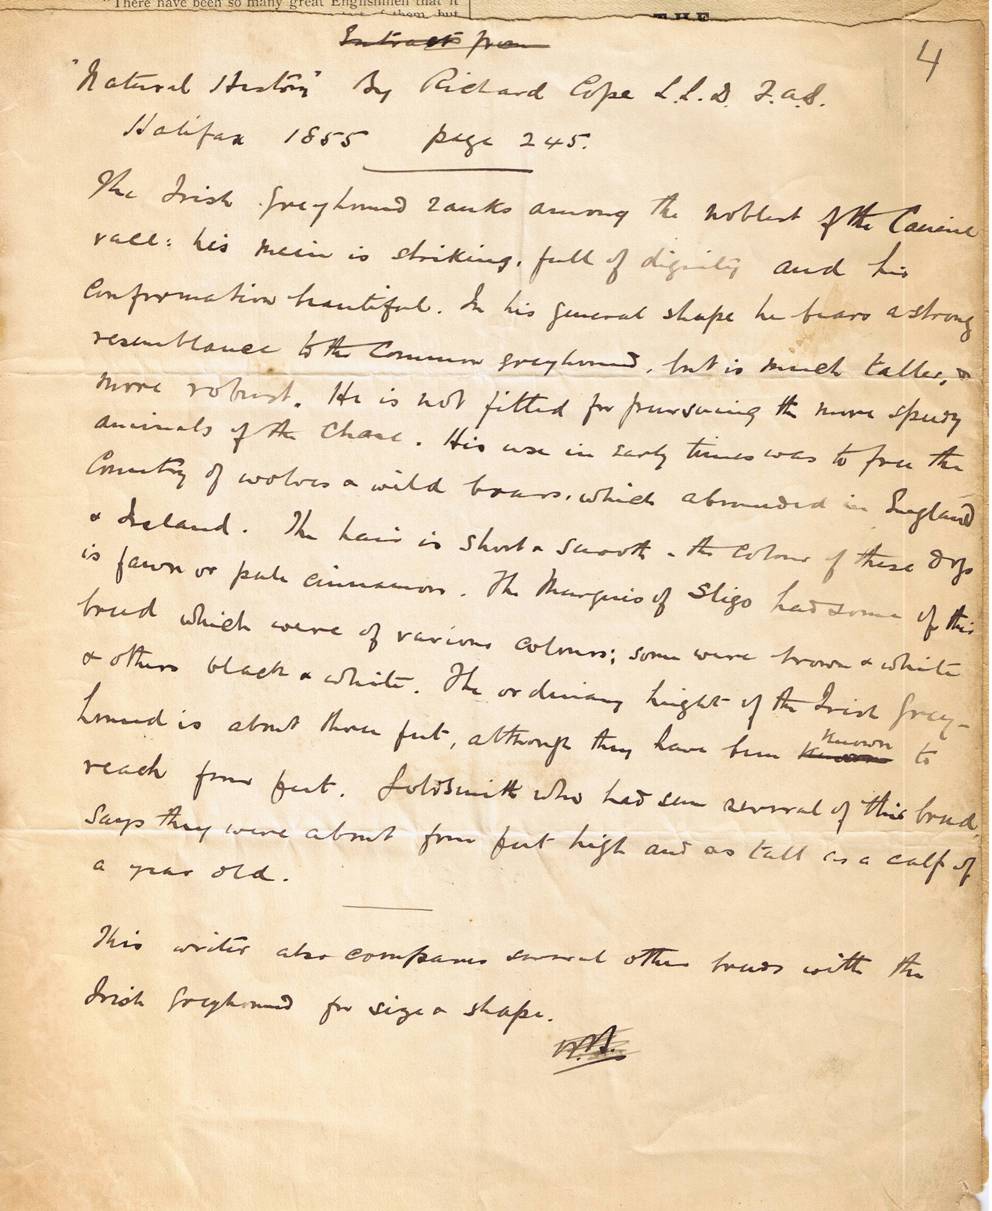 "There have been so many great Englishmen that it
of them, but
THE
4
Extracts from
"Natural History" By Richard Cope L.L.D. F.A.S.
Halifax 1855 page 245.
The Irish greyhound ranks among the noblest of the Canine
race: his mein is striking, full of dignity and his
conformation beautiful. In his general shape he bears a strong
resemblance to the Common greyhound, but is much taller, &
more robust. He is not fitted for pursuing the more speedy
animals of the Chase. His use in early times was to free the
Country of wolves & wild boars, which abounded in England
& Ireland. The hair is short & smooth - the colour of these dogs
is fawn or pale cinnamon. The Marquis of Sligo had some of this
breed which were of various colours; some were brown & white
& others black & white. The ordinary height of the Irish Grey-
hound is about three feet, although they have been known to
reach four feet. Goldsmith who had seen several of this breed,
says they were about four feet high and as tall as a calf of
a year old.
This writer also compares several other breeds with the
Irish Greyhound for size & shape.